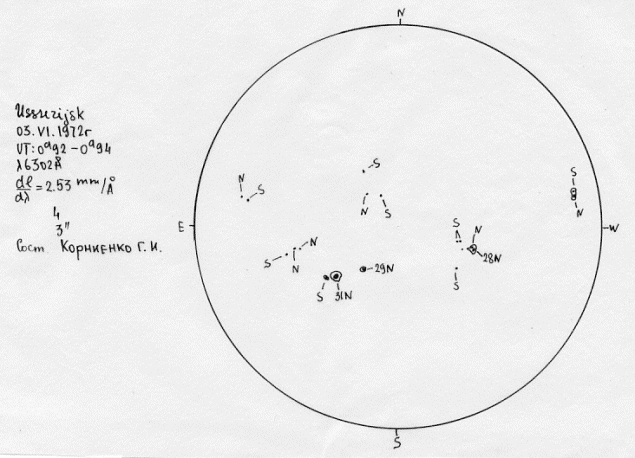 N
Ussurijsk
03.VI.1972г
UT: 0ᵈ92 – 0ᵈ94
λ6302Å
dl/dλ = 2.53 mm/Å
4
3"
Сост. Корниенко Г. И.
E
W
S
N
S
S
N
S
S
N
S
N
N
S
31N
29N
S
N
28N
S
S